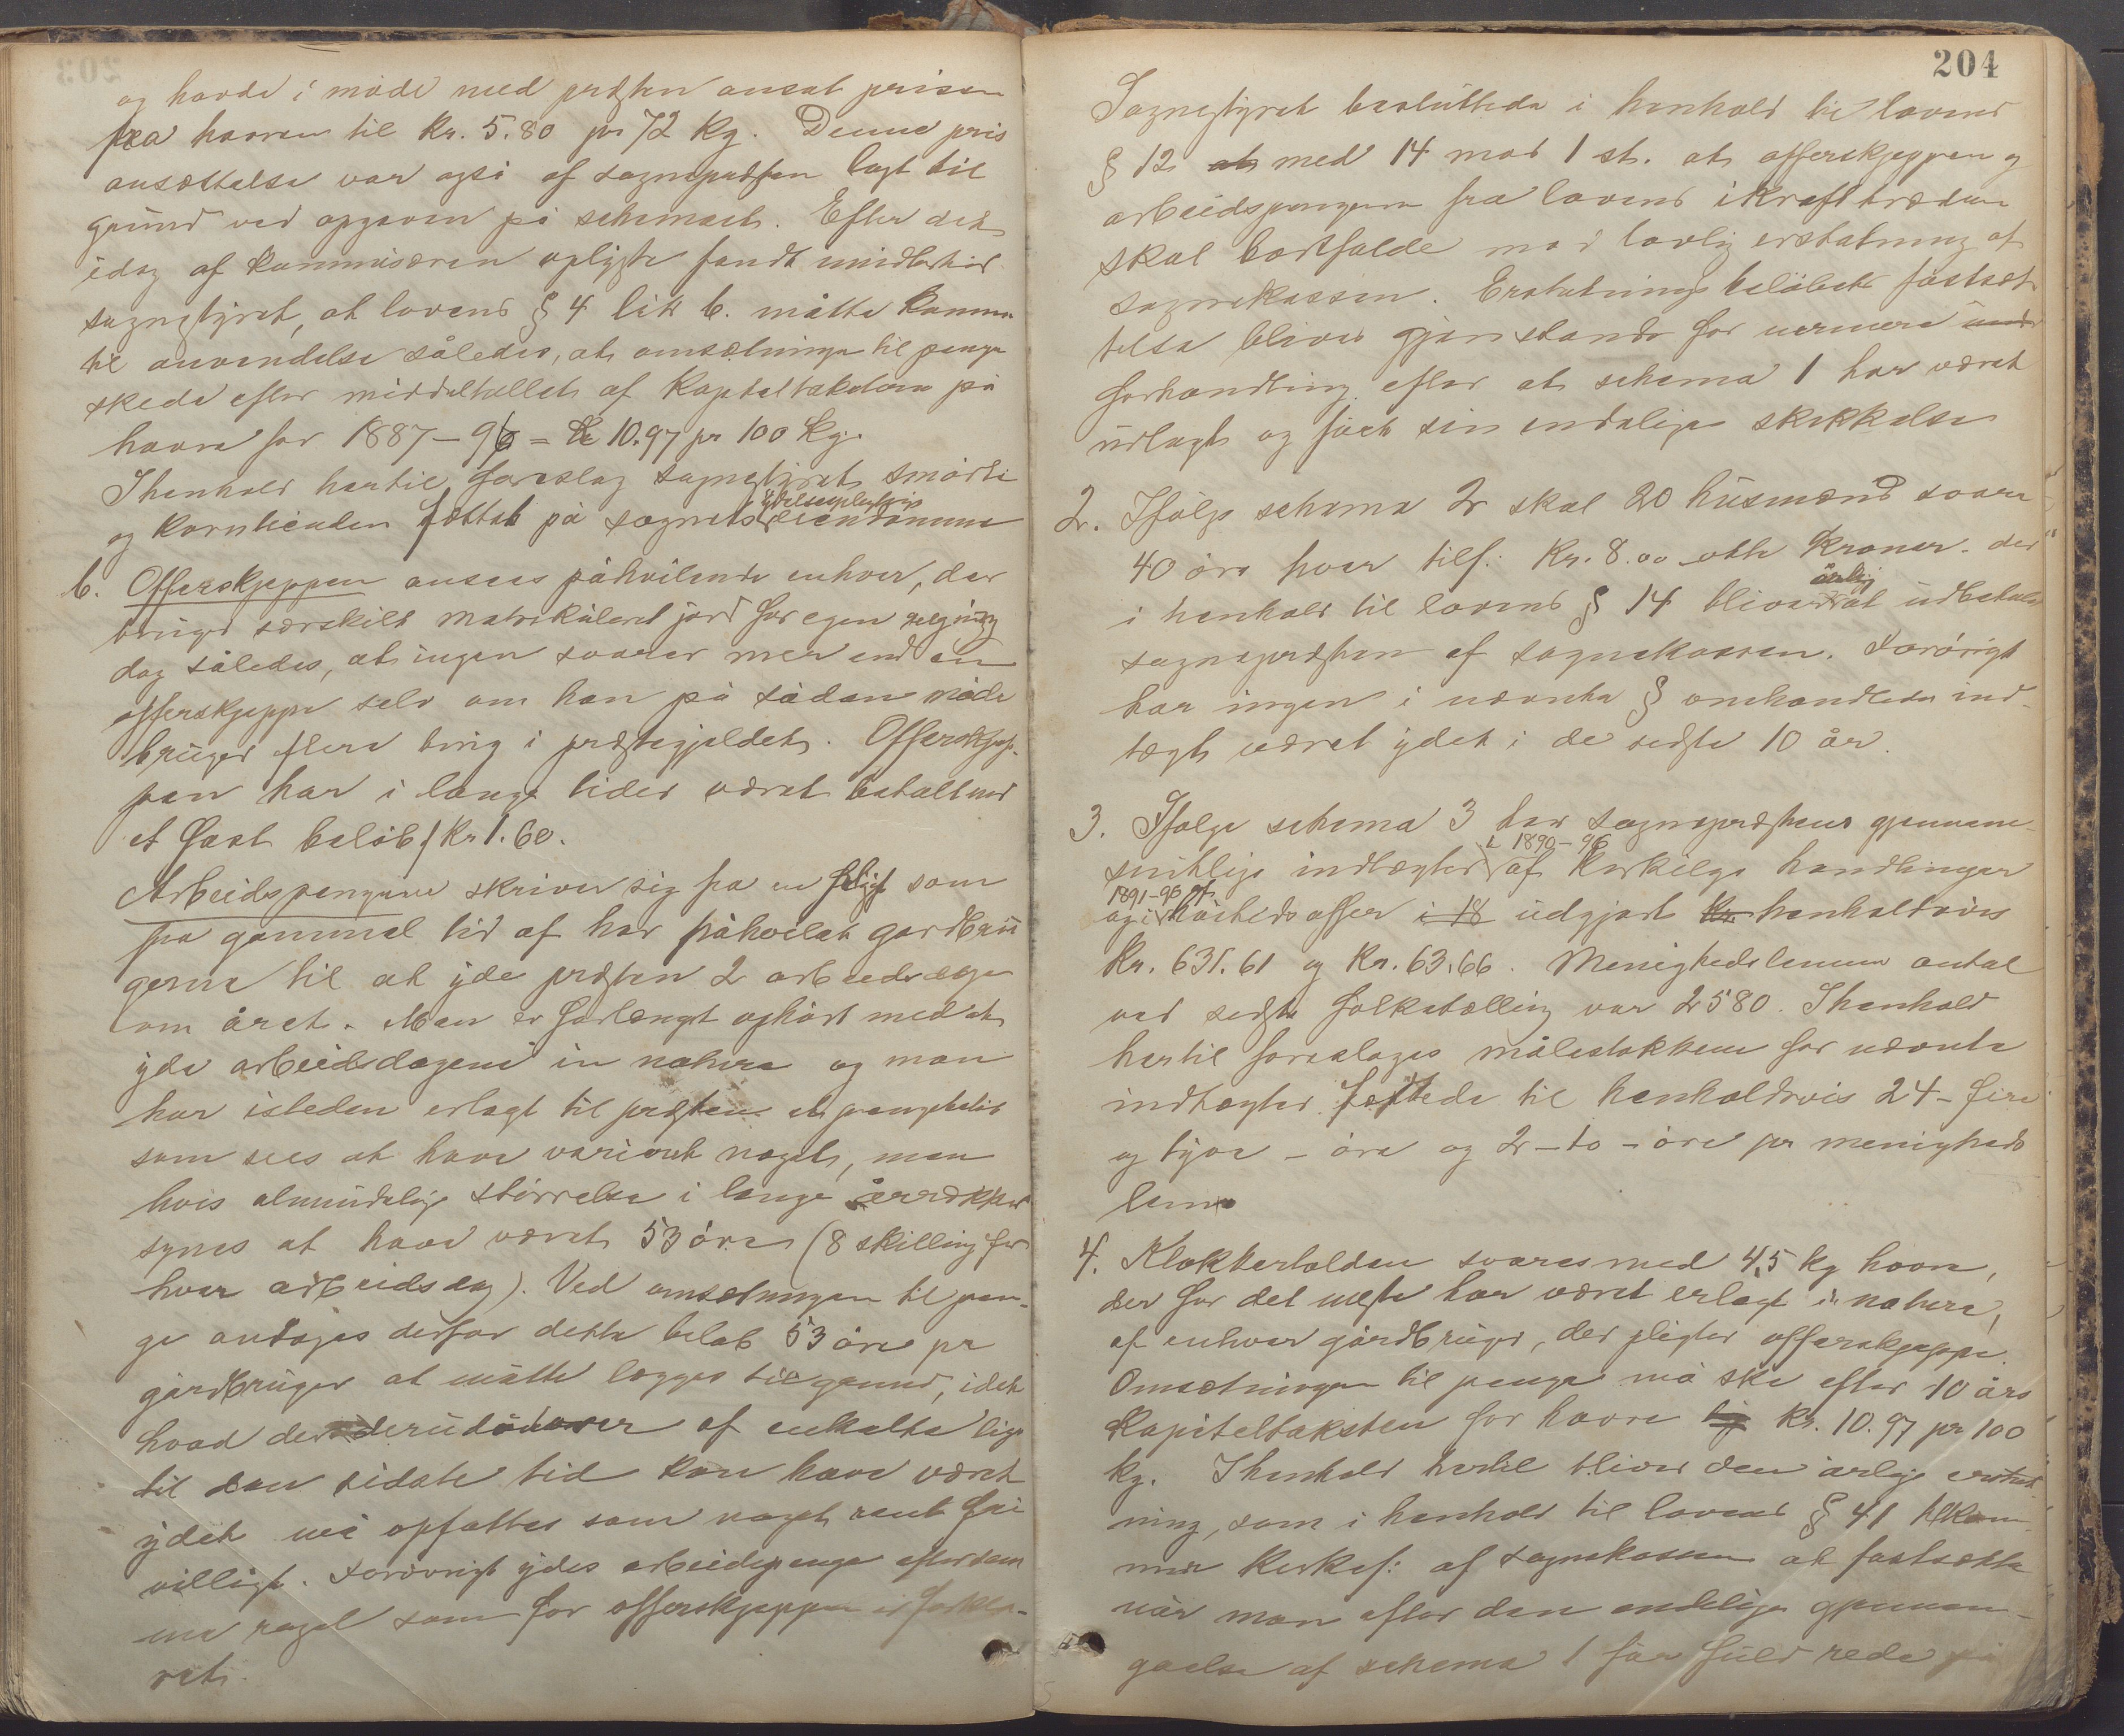 og havde i møde med præsten ansat prisen
fra havren til Kr. 5.80 pr 72 kg. Denne pris
ansættelse var også af sognepræsten lagt til
grund ved opgaven på schemaet. Efter det
idag af kommisæren oplyste fandt imidlertid
sognestyret, at lovens § 4 litr b. måtte komme
til anvendelse således, at omsætningen til penge
skede efter middeltallet af kapiteltaksterne på
havre for 1887–96 = Kr 10.97 pr 100 kg.
I henhold hertil foreslog sognestyret smør ti
og korntienden sættes på sognets ydelsespligtige eiendomme
b. Offerskjeppen ansees påhvilende enhver, der
bruger særskilt matrikuleret jord for egen regning
dog således, at ingen svarer mer end en
offerskjeppe selv om han på sådan måde
bruger flere brug i præstegjeldet. Offerskjep-
pen har i lange tider været betalt med
et fast beløb, Kr 1.60.
Arbeidspengene skriver sig fra en pligt som
fra gammel tid af har påhvilet gardbru
gerne til at yde præsten 2 arbeidsdage
om året. Man er forlengst ophørt med at
yde arbeidsdagene in natura og man
har isteden erlagt til præsten et pengebeløb
som sees at have varieret noget, men
hvis almindelige størrelse i lange årrækker
synes at have været 53 øre (8 skilling for
hver arbeidsdag). Ved omsætningen til pen-
ge antages derfor dette beløb 53 øre pr
gårdbruger at måtte lægges til grund, idet
hvad der derudover af enkelte lige
til den sidste tid kan have været
ydet må opfattes som noget rent fri
villigt. Forøvrigt ydes arbeidspenge efter sam
me regel som for offerskjeppen er forkla-
ret.
204
Sognestyret besluttede i henhold til lovens
§ 12 at med 14 mod 1 st. at offerskjeppen og
arbeidspengene fra lovens ikrafttræden
skal bortfalde mod lovlig erstatning af
sognekassen. Erstatningsbeløbets fastsæt
telse bliver gjenstand for nermere und
forhandling efter at schema 1 har været
udlagt og fået sin endelige skikkelse
2. Ifølge schema 2 skal 20 husmænd svare
40 øre hver tils: Kr. 8.00 otte Kroner – der
i henhold til lovens § 14 bliver årlig at udbetale
sognepræsten af sognekassen. Forøvrigt
har ingen i nævnte § omhandlede ind-
tægt været ydet i de sidste 10 år.
3. Ifølge schema 3 har sognepræstens gjennem-
snitlige indtægter i 1890–96 af kirkelige handlinger
og i 1891–96 af høitidsoffer i 18 udgjort Kr. henholdsvis
Kr. 631.61 og Kr. 63.66. Menighedslemmernes antal
ved sidste folketælling var 2580. I henhold
hertil foreslages målestokkene for nævnte
indtægter sættede til henholdsvis 24 – fire
og tyve – øre og 2 – to – øre pr menigheds
lem
4. Klokkertolden svares med 4,5 kg havre,
der for det meste har været erlagt in natura,
af enhver gårdbruger, der pligter offerskjeppe.
Omsætningen til penge må ske efter 10 års
kapiteltaksten for havre Kr. 10.97 pr 100
kg. I henhold hertil bliver den årlige erstat-
ning, som i henhold til lovens § 41 tilkom-
mer kirkes: af sognekassen at fastsætte
når man efter den endelige gjennem-
gåelse af schema 1 får fuld rede på